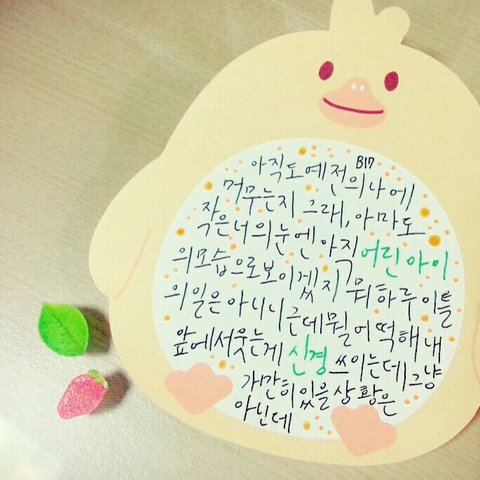 B17
아직도 예전의 나에
머무는지 그래, 아마도
작은 너의 눈엔 아직 어린아이
의 모습으로 보이겠지 뭐 하루 이틀
의 일은 아니니 근데 뭘 어떡해 내
앞에서 웃는게 신경 쓰이는데 그냥
가만히 있을 상황은
아닌데